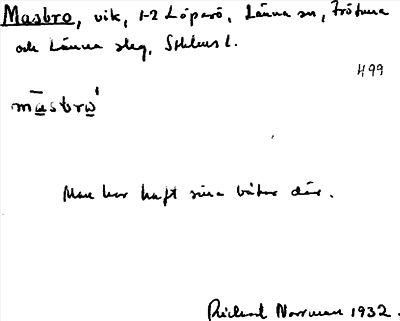 Masbro, vik, 1-2 Löparö, Länna sn, Frötuna
och Länna slg, Sthlms l.
499
māsbrω'
Man har haft sina båtar där.
Rickard Norrman 1932.